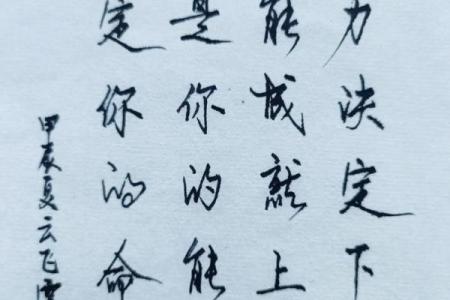 力决定下
能成就上
是你的能
定你的命
甲辰夏云飞